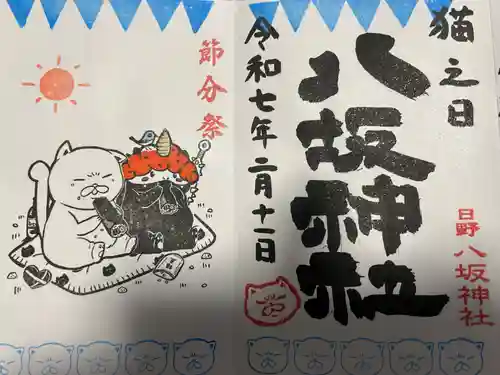 猫之日
八坂神社
日野 八坂神社
令和七年二月十一日
節分祭